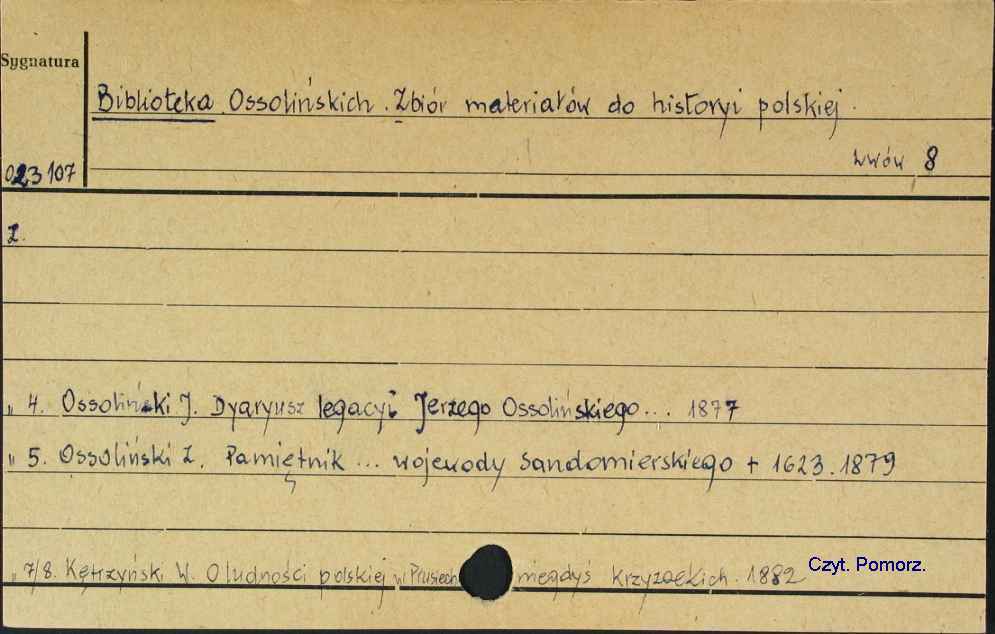 Sygnatura
Biblioteka Ossolińskich. Zbiór materiałów do historyi polskiej.
Lwów 8
023107
Z.
„ 4. Ossoliński J. Dyaryusz legacyi Jerzego Ossolińskiego... 1877
„ 5. Ossoliński Z. Pamiętnik ... wojewody sandomierskiego + 1623. 1879
„ 7/8. Kętrzyński W. O ludności polskiej w Prusiech niegdyś krzyżackich. 1882 Czyt. Pomorz.